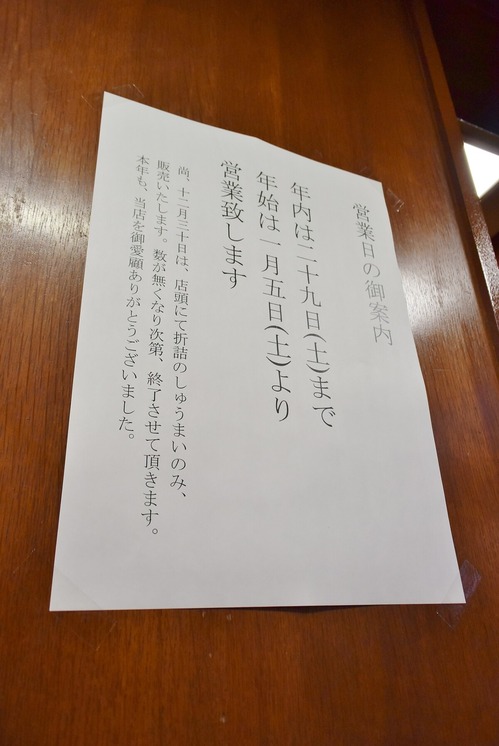 営業日の御案内
年内は二十九日(土)まで
年始は一月五日(土)より
営業致します
尚、十二月三十日は、店頭にて折詰のしゅうまいのみ、
販売いたします。数が無くなり次第、終了させて頂きます。
本年も、当店を御愛顧ありがとうございました。